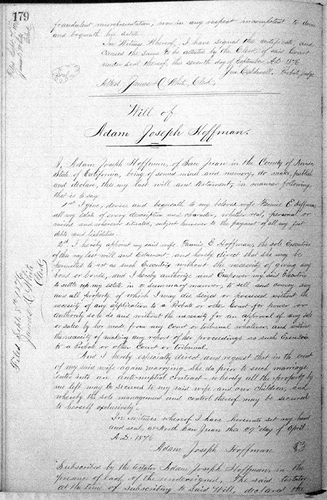 179
fraudulent misrepresentation, nor in any respect incompetent to devise
and bequeath his estate.
In Witness Whereof, I have signed this certificate and
caused the same to be attested by the Clerk of said Court
under seal thereof, this seventh day of September A.D. 1876.
Probate Judge
Attest, James Clerk
Will of
Adam Joseph Hoffman.
I, Adam Joseph Hoffman, of San Juan in the County of
State of California, being of sound mind and memory, do make, publish
and declare, this my last will and testament, in manner following,
that is to say:
1st I give, devise and bequeath to my beloved wife, C. Hoffman,
all my estate of every description and character, whether real, personal or
mixed and wherever situated, subject however to the payment of all my just
debts and liabilities.
2nd I hereby appoint my said wife, C. Hoffman, the sole Executrix
of this my last will and testament and hereby direct that she may be
permitted to act as said Executrix without the necessity of giving any
bond or bonds, and I hereby authorize and empower my said Executrix
to settle up my estate in a summary manner, to sell and convey any
and all property of which I may die seized or possessed without the
necessity of any application to a Probate or other Court for power or
authority so to do and without the necessity for an approval of any sale
or sales by her made from any Court or tribunal whatever, and without
the necessity of making any report of her proceedings as such Executrix
to a Probate or other Court or tribunal.
And I hereby especially direct and request that in the event
of my said wife again marrying, she do prior to such marriage
enter into an ante-nuptial contract whereby all the property by
me left may be secured to my said wife and our children, and
whereby the sole management and control thereof may be secured
to herself exclusively.
In witness whereof I have hereunto set my hand
and seal, at San Juan this day of April
A.D. 1876
Adam Joseph Hoffman
Subscribed by the testator Adam Joseph Hoffman, in the
presence of each of the undersigned, the said testator
at the time of subscribing to said Will, declared the